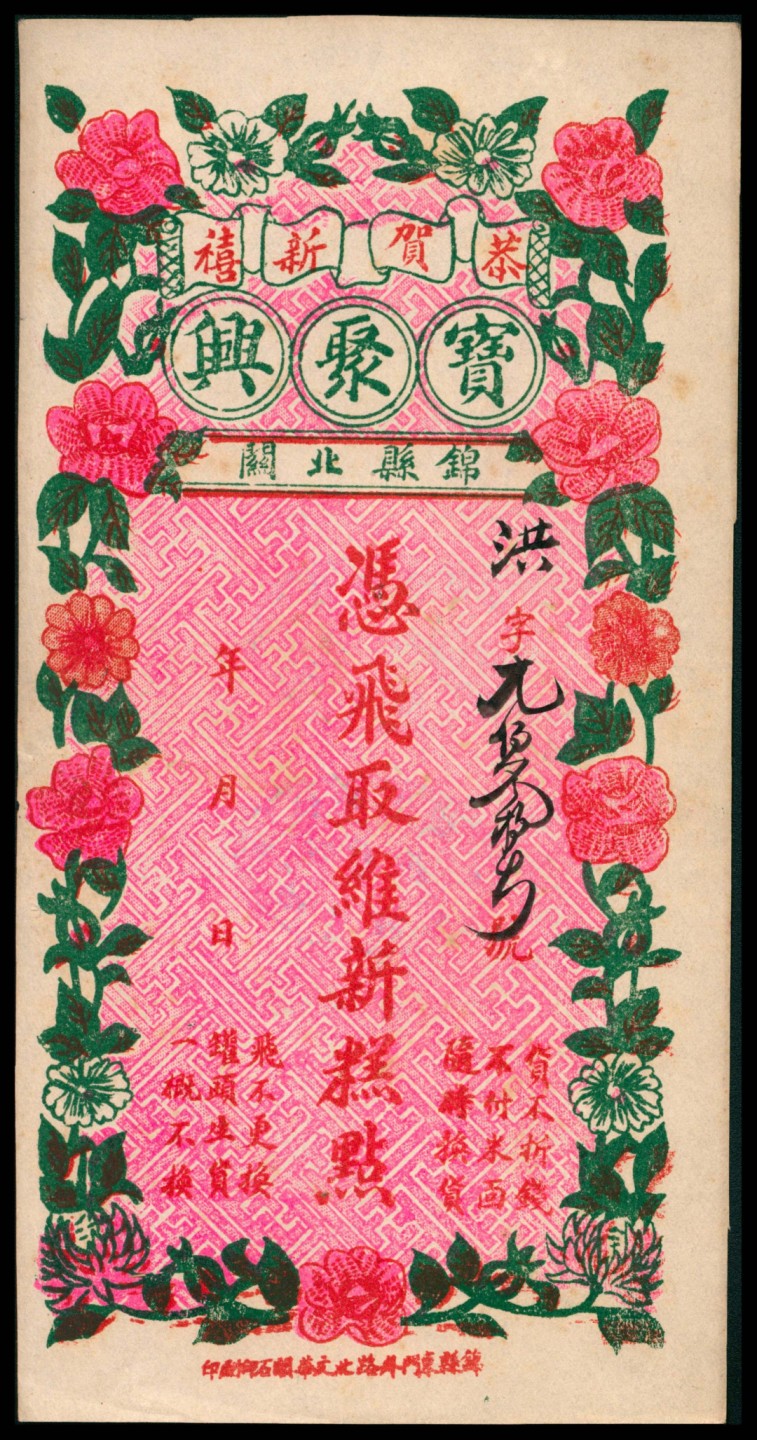 恭賀新禧
寶聚興
錦縣北關
洪字
號
貨不折錢
不付米面
隨時換貨
憑飛取維新糕點
年月日
飛不更換
罐頭生貨
一概不換
錦縣東門外路北文華閣石印局印